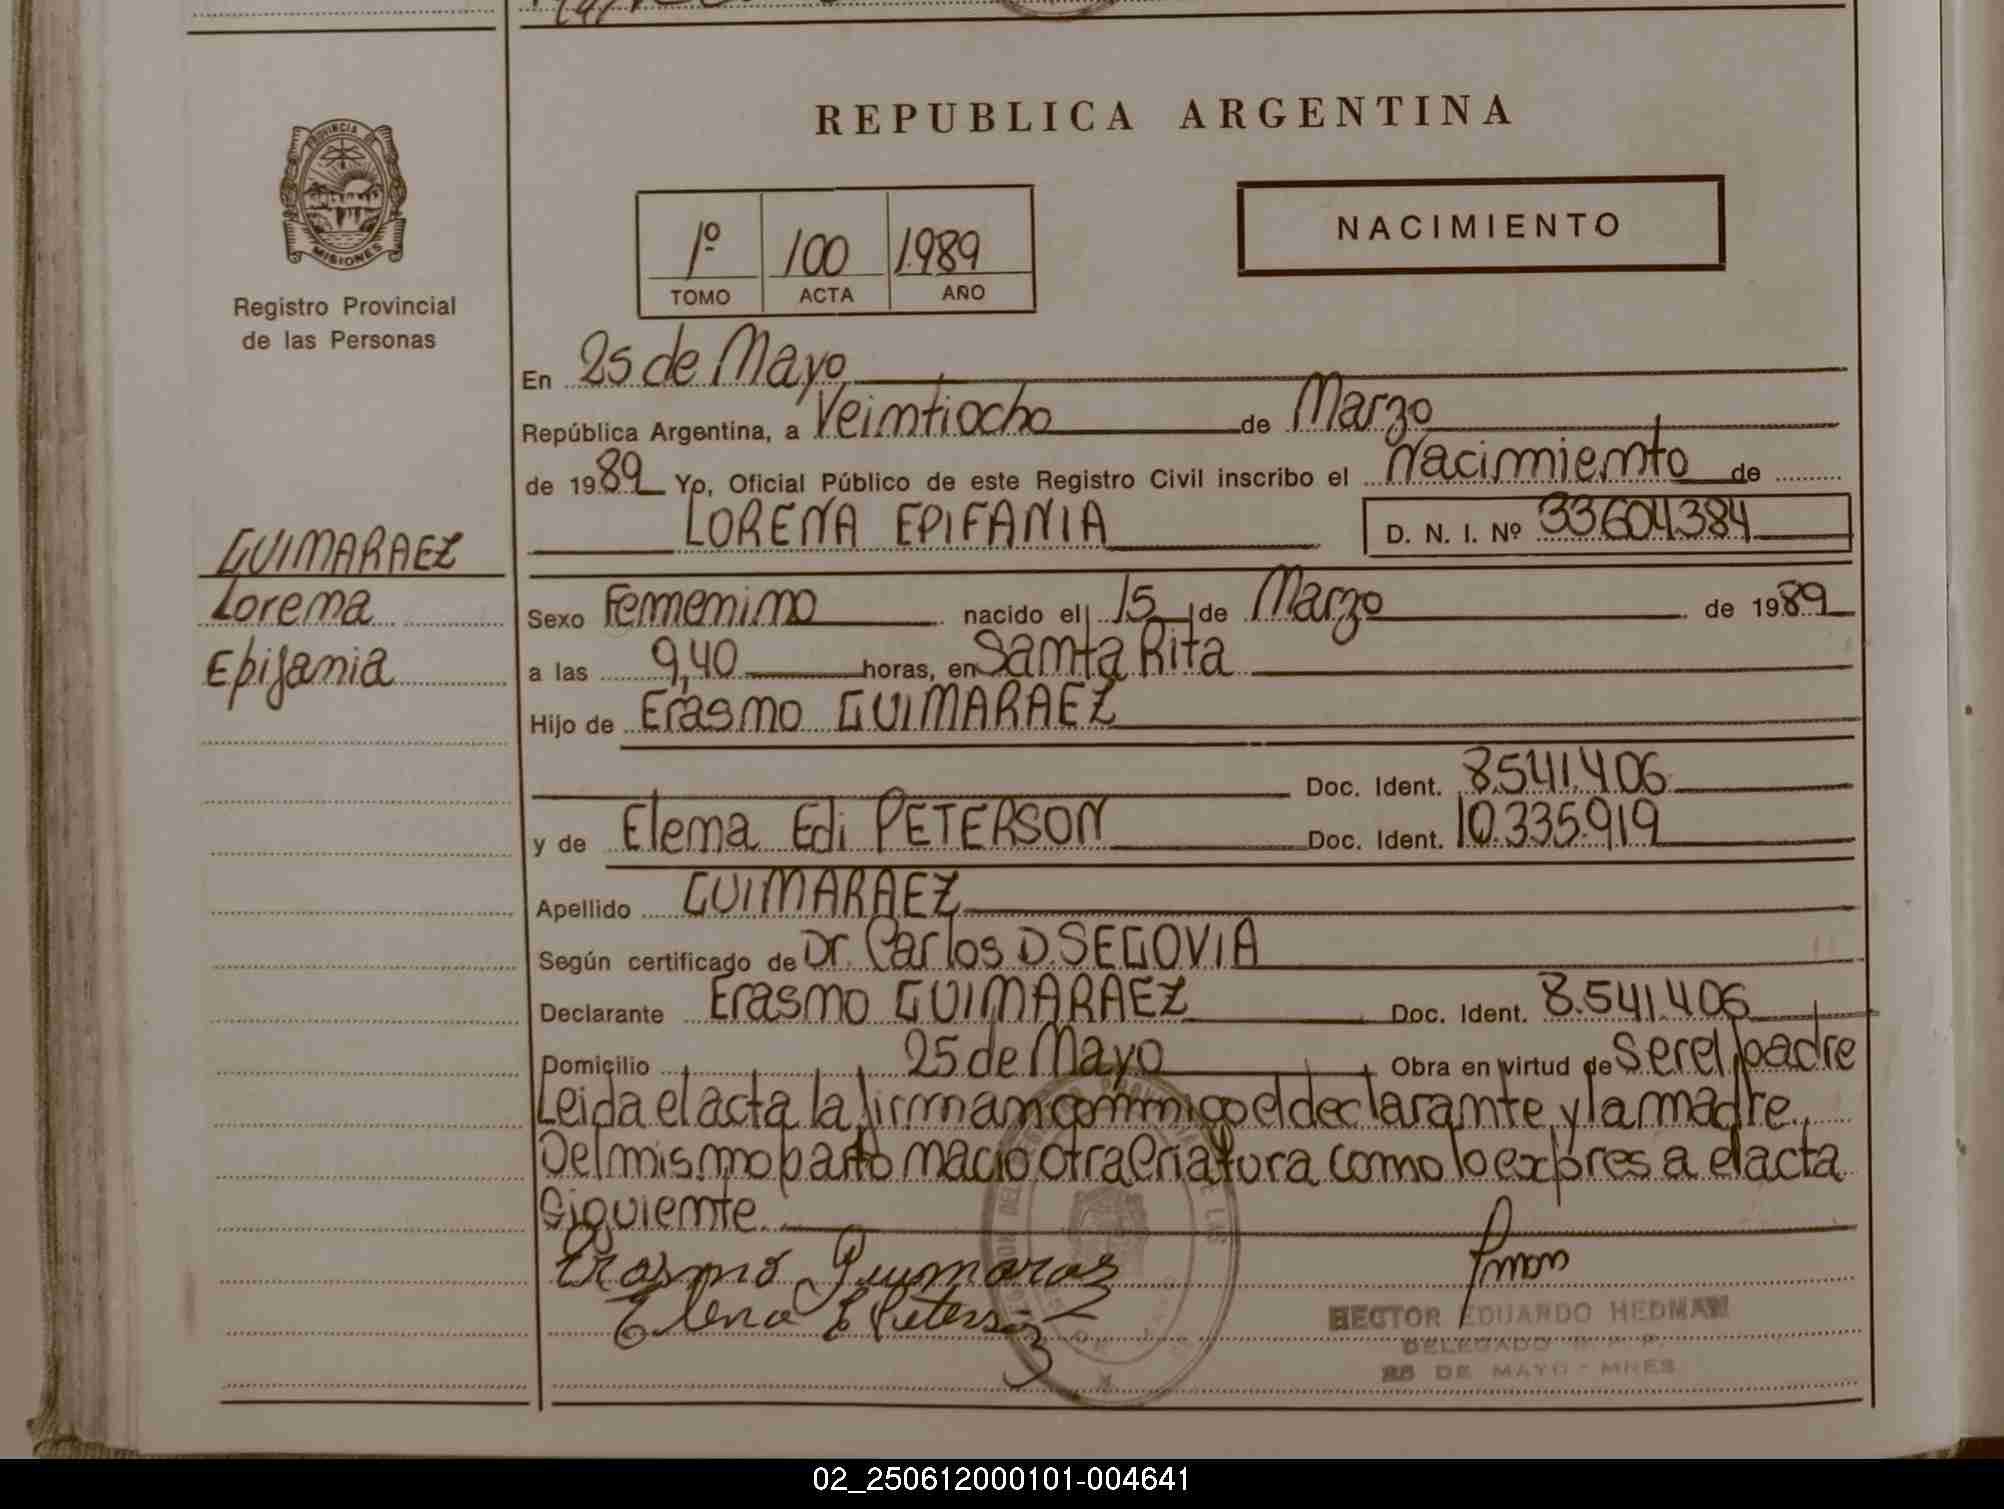 REPUBLICA ARGENTINA
PROVINCIA DE
MISIONES
Registro Provincial
de las Personas
1º 100 1.989
TOMO ACTA AÑO
NACIMIENTO
En 25 de Mayo
República Argentina, a Veintiocho de Marzo
de 1989 Yo, Oficial Público de este Registro Civil inscribo el Nacimiento de
LORENA EPIFANIA D. N. I. Nº 33604384
GUIMARAEZ
Lorena
Epifania
Sexo Femenino nacido el 15 de Marzo de 1989
a las 9,40 horas, en Santa Rita
Hijo de Erasmo GUIMARAEZ
Doc. Ident. 8.541.406
y de Elena Edi PETERSON Doc. Ident. 10.335.919
Apellido GUIMARAEZ
Según certificado de Dr. Carlos D. SEGOVIA
Declarante Erasmo GUIMARAEZ Doc. Ident. 8.541.406
Domicilio 25 de Mayo Obra en virtud de Ser el padre
Leida el acta la firman conmigo el declarante y la madre.
Del mismo parto nacio otra Criatura como lo expresa el acta
Siguiente.
Erasmo Guimaraz
Elena E Peterson
HECTOR EDUARDO HEDMAN
DELEGADO R. P. P.
25 DE MAYO - MNES
02_250612000101-004641